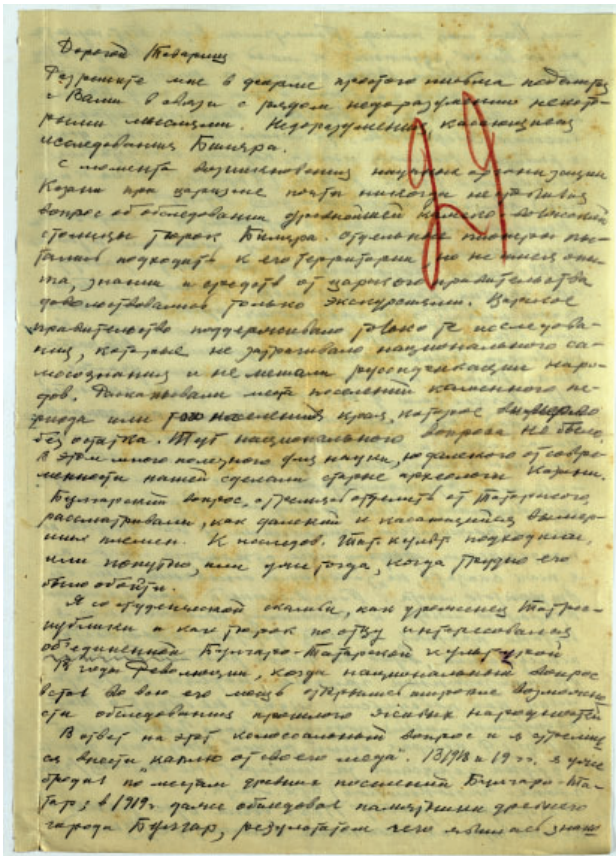 Дорогой Товарищ
Разрешите мне в форме простого письма поделиться
с Вами в связи с рядом недоразумений некото-
рыми мыслями. Недоразумения, касающиеся
исследования Биляра.
С момента возникновения научных организаций
Казани при царизме почти никогда не
вопрос об обследовании древнейшей камско-волжской
столицы тюрок Биляра. Отдельные пионеры пы-
тались подходить к его территории, но не имея опы-
та, знания и средств от царского правительства
довольствовались только экскурсиями. Царское
правительство поддерживало только те исследова-
ния, которые не затрагивало национального са-
мосознания и не мешали русификации наро-
дов. Раскапывали места поселений каменного пе-
риода или того населения края, которое вымерло
без остатка. Тут национального вопроса не было.
В этом много полезного для науки, но далекого от совре-
менности нашей сделали старые археологи Казани.
Булгарский вопрос, стремясь отделить от Татарского,
рассматривали, как далекий и касающийся вымер-
ших племен. К последов. Тат. культ. подходили,
или попутно, или уже тогда, когда трудно его
было обойти.
Я со студенческой скамьи, как уроженец Татрес-
публики и как тюрок по отцу интересовался
объединенной Булгаро-Татарской культурой
В годы Революции, когда национальный вопрос
встал во всю его мощь открылись широкие возможно-
сти обследования прошлого живых народностей
В ответ на этот колоссальный вопрос и я стремил-
ся внести каплю от своего меда". В 1918 и 19 гг. я уже
бродил по местам древних поселений Булгаро-Та-
тар; в 1919 г. даже обследовал памятники древнего
города Булгар, результатом чего явилась